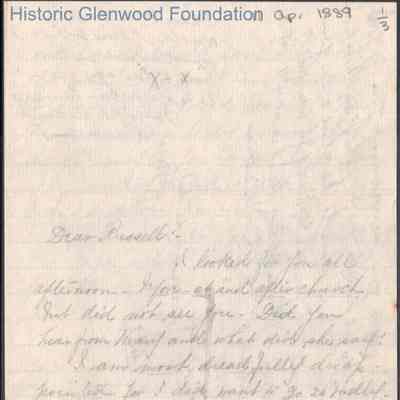 Historic Glenwood Foundation
Ap. 1889
1/3
"X - X"
Dear Russell:-
I looked for you all
afternoon - before - at and after church,
but did not see you - Did you
hear from Mary and what did she say?
I am most dreadfully disap-
pointed for I did want to go so badly -